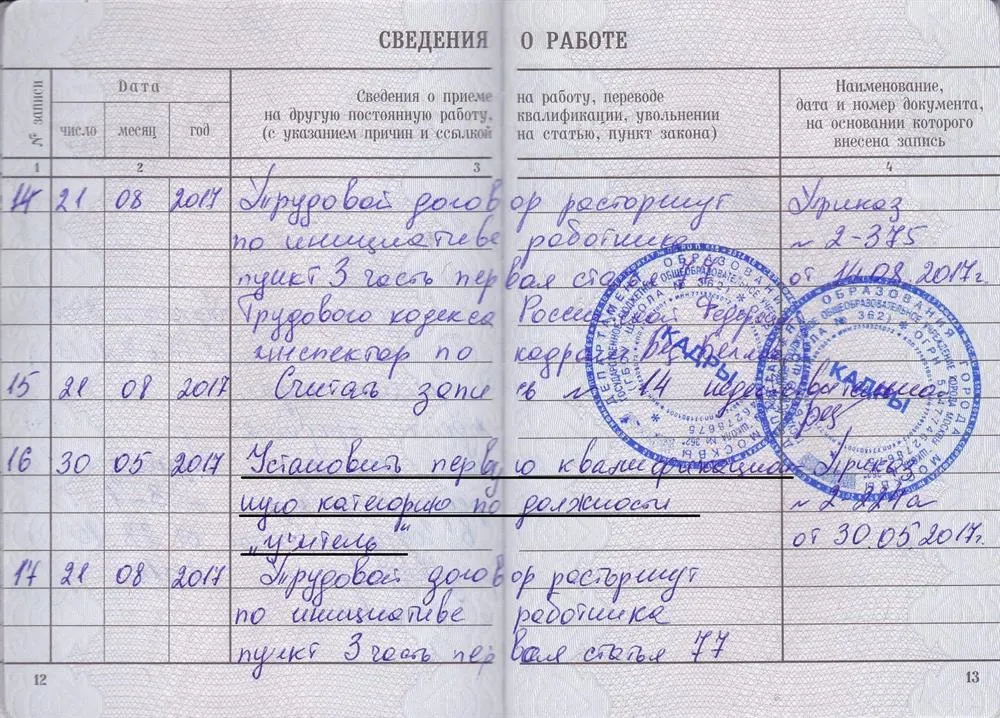 СВЕДЕНИЯ О РАБОТЕ
№ записи
Дата
число месяц год
Сведения о приеме на работу, переводе
на другую постоянную работу, квалификации, увольнении
(с указанием причин и ссылкой на статью, пункт закона)
Наименование,
дата и номер документа,
на основании которого
внесена запись
1 2 3 4
14 21 08 2017 Трудовой договор расторгнут Приказ
по инициативе работника № 2-375
пункт 3 часть первая статьи от 14.08.2017г.
Трудового кодекса Российской Федерации
инспектор по кадрам
15 21 08 2017 Считать запись № 14 недействительна
16 30 05 2017 Установить первую квалификацион- Приказ
ную категорию по должности № 2-221а
"учитель" от 30.05.2017г.
17 21 08 2017 Трудовой договор расторгнут
по инициативе работника
пункт 3 часть первая статья 77
КАДРЫ
КАДРЫ
12
13